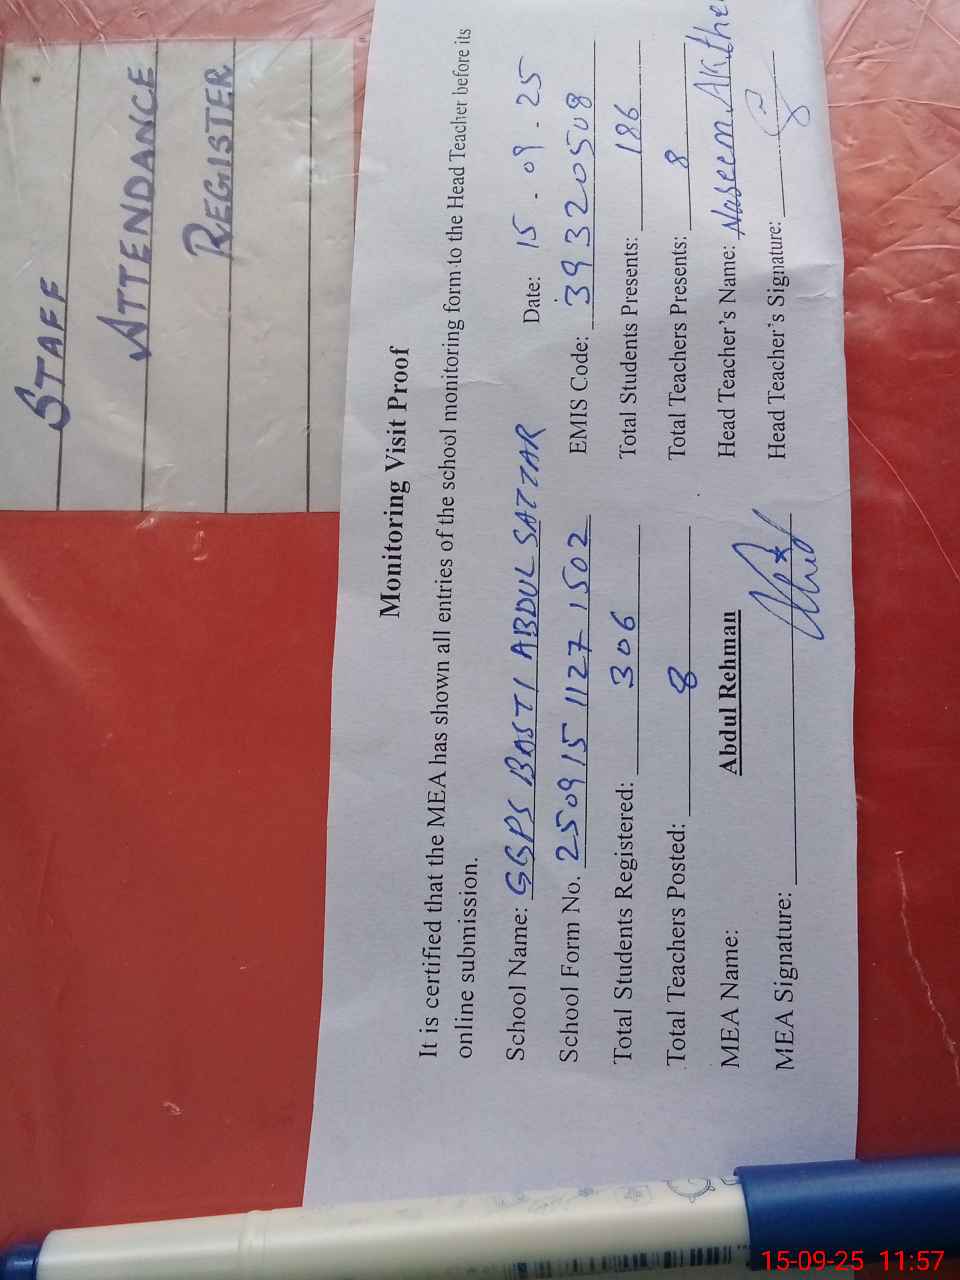 STAFF
ATTENDANCE
REGISTER
Monitoring Visit Proof
It is certified that the MEA has shown all entries of the school monitoring form to the Head Teacher before its
online submission.
School Name: GGPS BASTI ABDUL SATTAR Date: 15-09-25
School Form No. 250915 1127 1502 EMIS Code: 39320508
Total Students Registered: 306 Total Students Presents: 186
Total Teachers Posted: 8 Total Teachers Presents: 8
MEA Name: Abdul Rehman Head Teacher's Name: Naseem Akther
MEA Signature: Head Teacher's Signature:
15-09-25 11:57